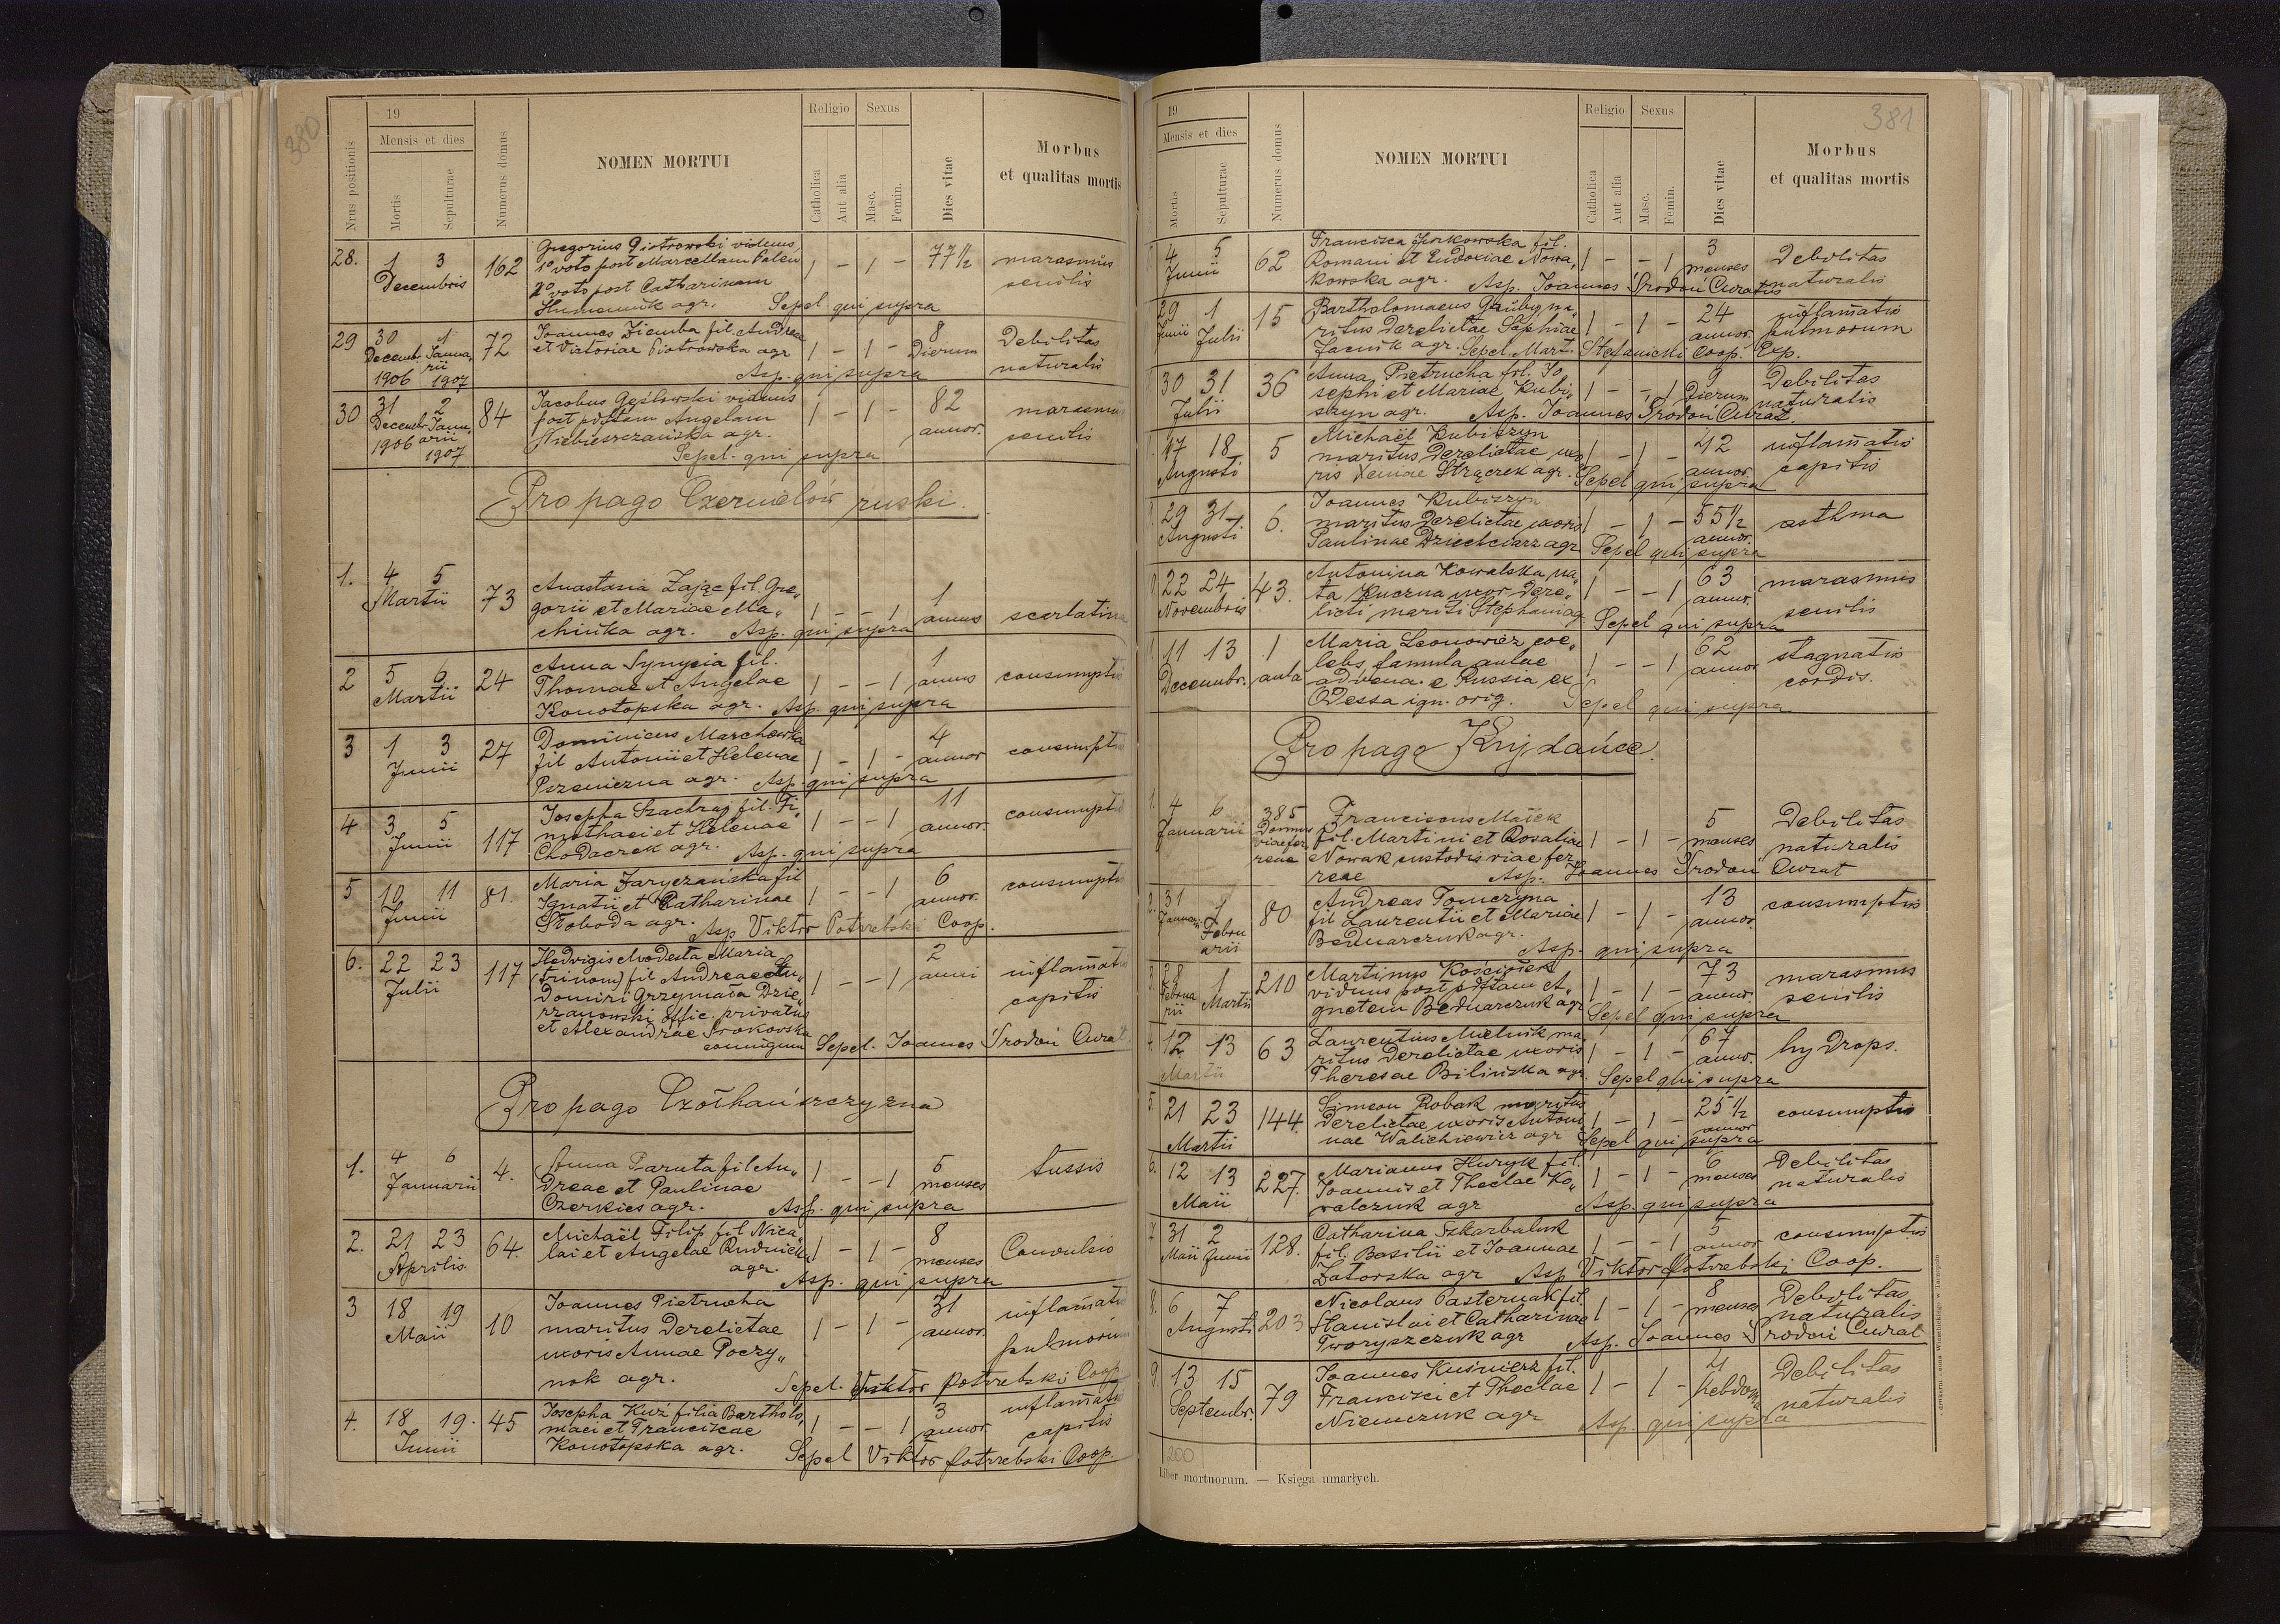 380
19
Religio Sexus
Mensis et dies
Nrus positionis
Mortis
Sepulturae
Numerus domus
NOMEN MORTUI
Catholica
Aut alia
Masc.
Femin.
Dies vitae
Morbus
et qualitas mortis
28. 1 3 162 Gregorius Piotrowski viduus 1 - 1 - 77 1/2 marasmus
Decembris 1o voto post Marcellam senilis
2o voto post Catharinam
agr. Sepel qui supra
29 30 1 72 Joannes Ziemba fil. Andreae 1 - 1 - 8 Debilitas
Decemb. Janua, et Victoriae Piotrowska agr Dierum naturalis
rii
1906 1907 Asp. qui supra
30 31 2 84 Jacobus viduus 1 - 1 - 82 marasmus
Decembr. Janu, post Angelam annor. senilis
1906 arii Niebieszczańska agr.
1907 Sepel. qui supra
Propago Czernielów ruski.
1. 4 5 73 Anastasia Zając fil. Gre„ 1 - - 1 1 scarlatina
Martii gorii et Mariae Ma„ annus
chińka agr. Asp. qui supra
2 5 6 24 Anna Synycia fil. 1 - - 1 1 consumptio
Martii Thomae et Angelae annus
Konotopska agr. Asp. qui supra
3 1 3 27 Dominicus Marchewka 1 - 1 - 4 consumptio
Junii fil Antonii et Helenae annor
Pszeniczna agr. Asp. qui supra
4 3 5 117 Josepha Szachraj fil. Ti„ 1 - - 1 11 consumptio
Junii mothaei et Helenae annor.
Chodaczek agr. Asp. qui supra
5 10 11 81. Maria Zaryczańska fil 1 - - 1 6 consumptio
Junii Ignatii et Catharinae annor.
Słoboda agr. Asp Viktor Potrzebski Coop.
6. 22 23 117 Hedvigis Modesta Maria 1 - - 1 2 inflamatio
Julii (trinom) fil Andreae Lu„ anni capitis
Domiri Grzymała Dzie„
rzanowski offic. privatus
et Alexandrae Srokowska
coniugum Sepel. Joannes Środoń Curat
Propago Czołhańszczyzna
1. 4 6 4. Anna Paruta fil An„ 1 - - 1 5 tussis
Januarii dreae et Paulinae menses
Czerkies agr. Asp. qui supra
2. 21 23 64. Michaël Filip fil Nico„ 1 - 1 - 8 Convulsio
Aprilis lai et Angelae Rudnicka menses
agr. Asp. qui supra
3 18 19 10 Joannes Pietrucha 1 - 1 - 31 inflamatio
Maii maritus derelictae annor. pulmorum
uxoris Annae Poczy„
nok agr. Sepel. Viktor Potrzebski Coop
4. 18 19. 45 Josepha Kuź filia Bartholo„ 1 - - 1 3 inflamatio
Junii maei et Franciscae annor capitis
Konotopska agr. Sepel Viktor Potrzebski Coop.
381
19
Religio Sexus
Mensis et dies
Mortis
Sepulturae
Numerus domus
NOMEN MORTUI
Catholica
Aut alia
Masc.
Femin.
Dies vitae
Morbus
et qualitas mortis
4 5 62 Francisca Jurkowska fil. 1 - - 1 3 Debilitas
Junii Romani et Eudoxiae Nowa„ menses naturalis
kowska agr. Asp. Joannes Środoń Curatus
29 1 15 Bartholomaeus Grüby ma„ 1 - 1 - 24 inflamatio
Junii Julii ritus derelictae Sophiae annor. pulmorum
Jacnik agr. Sepel. Mart. Stefanicki Coop. Exp.
30 31 36 Anna Pietrucha fil. Jo 1 - - 1 9 Debilitas
Julii sephi et Mariae Kubi„ Dierum naturalis
szyn agr. Asp. Joannes Środoń Curat.
17 18 5 Michaël Kubiszyn 1 - 1 - 42 inflamatio
Augusti maritus derelictae uxo annor. capitis
ris Xeniae Strączek agr. Sepel qui supra
29 31 6. Joannes Kubiszyn 1 - 1 - 55 1/2 asthma
Augusti maritus derelictae uxoris annor.
Paulinae Dziechciarz agr Sepel qui supra
22 24 43. Antonina Kowalska na„ 1 - - 1 63 marasmus
Novembris ta Kuczna uxor dere„ annor. senilis
licti mariti Stephani ag Sepel qui supra
11 13 1 Maria Leonowicz coe„ 1 - - 1 62 stagnatio
Decembr. aula lebs, famula aulae annor cordis.
advena e Russia ex
Odessa ign. orig. Sepel qui supra
Propago Kujdańce.
1. 4 6 385 Franciscus Maćek 1 - 1 - 5 Debilitas
Januarii Domus fil. Martini et Rosaliae menses naturalis
viae fer Nowak custodis viae fer
reae reae Asp. Joannes Środoń Curat
2. 31 1 80 Andreas Tomczyna 1 - 1 - 13 consumptio
Januarii Febru fil Laurentii et Mariae annor.
arii Bednarczuk agr. Asp. qui supra
3. 28 1 210 Martinus Kościółek 1 - 1 - 73 marasmus
Februa Martii viduus post A„ annor. senilis
rii gnetem Bednarczuk agr Sepel qui supra
4. 12 13 63 Laurentius Mielnik ma„ 1 - 1 - 67 hydrops.
Martii ritus derelictae uxoris annor.
Theresae Bilińska agr. Sepel qui supra
5. 21 23 144. Simeon Robak maritus 1 - 1 - 25 1/2 consumptio
Martii derelictae uxoris Antoni annor
nae Walichiewicz agr Sepel qui supra
6. 12 13 227. Marianus Huryk fil. 1 - 1 - 6 Debilitas
Maii Joannis et Theclae Ko„ menses naturalis
walczuk agr Asp. qui supra
7 31 2 128. Catharina Szkarbaluk 1 - - 1 5 consumptio
Maii Junii fil. Basilii et Joannae annor
Zatorska agr Asp Viktor Potrzebski Coop.
8. 6 7 203 Nicolaus Pasternak fil. 1 - 1 - 8 Debilitas
Augusti Stanislai et Catharinae menses naturalis
Tworyszczuk agr Asp. Joannes Środoń Curat
9. 13 15 79 Joannes Kuśnierz fil. 1 - 1 - 4 Debilitas
Septembr. Francisci et Theclae hebdom naturalis
Niemczuk agr Asp. qui supra
200
Liber mortuorum. — Księga umarłych.